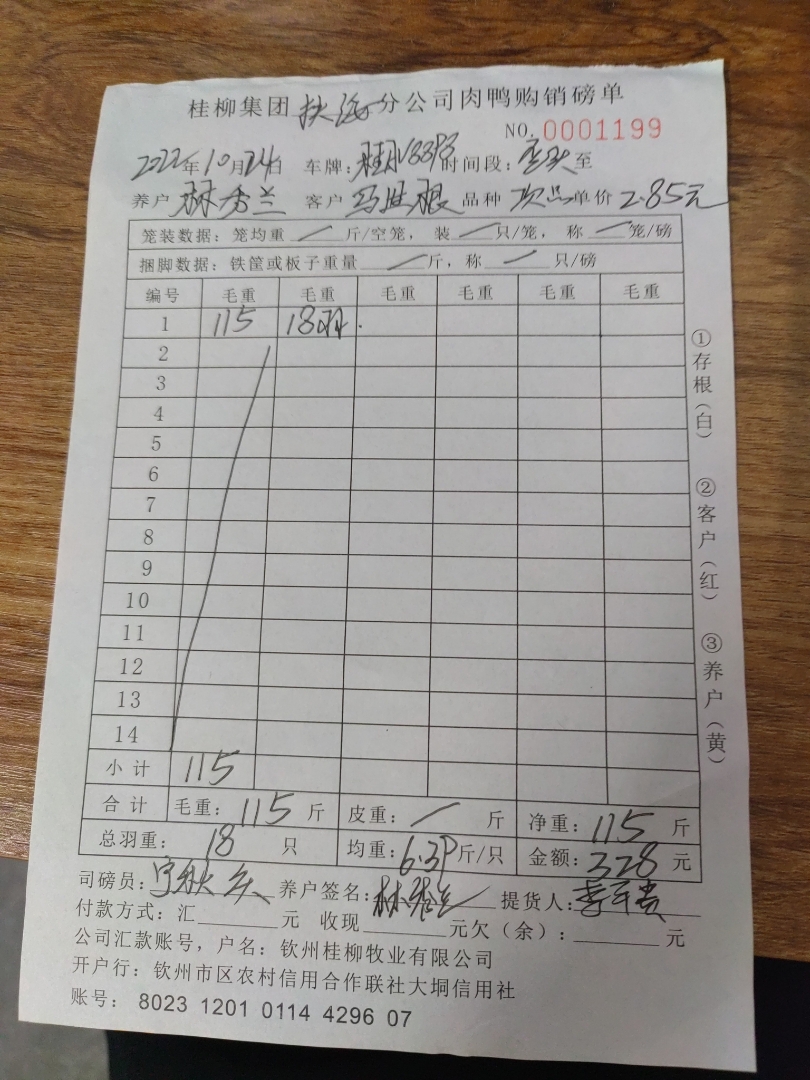 桂柳集团 扶海 分公司肉鸭购销磅单
NO. 0001199
2022年10月24日 车牌: 时间段: 至
养户 林秀兰 客户 马进根 品种 次品 单价 2.85元
笼装数据: 笼均重 / 斤/空笼, 装 / 只/笼, 称 / 笼/磅
捆脚数据: 铁筐或板子重量 / 斤, 称 / 只/磅
编号 毛重 毛重 毛重 毛重 毛重 毛重
1 115 18羽.
2
3
4
5
6
7
8
9
10
11
12
13
14
小计 115
合计 毛重: 115 斤 皮重: / 斤 净重: 115 斤
总羽重: 18 只 均重: 6.39 斤/只 金额: 328 元
司磅员: 养户签名: 林秀兰 提货人: 李军贵
付款方式: 汇 元 收现 元欠(余): 元
公司汇款账号, 户名: 钦州桂柳牧业有限公司
开户行: 钦州市区农村信用合作联社大垌信用社
账号: 8023 1201 0114 4296 07
①存根(白)
②客户(红)
③养户(黄)